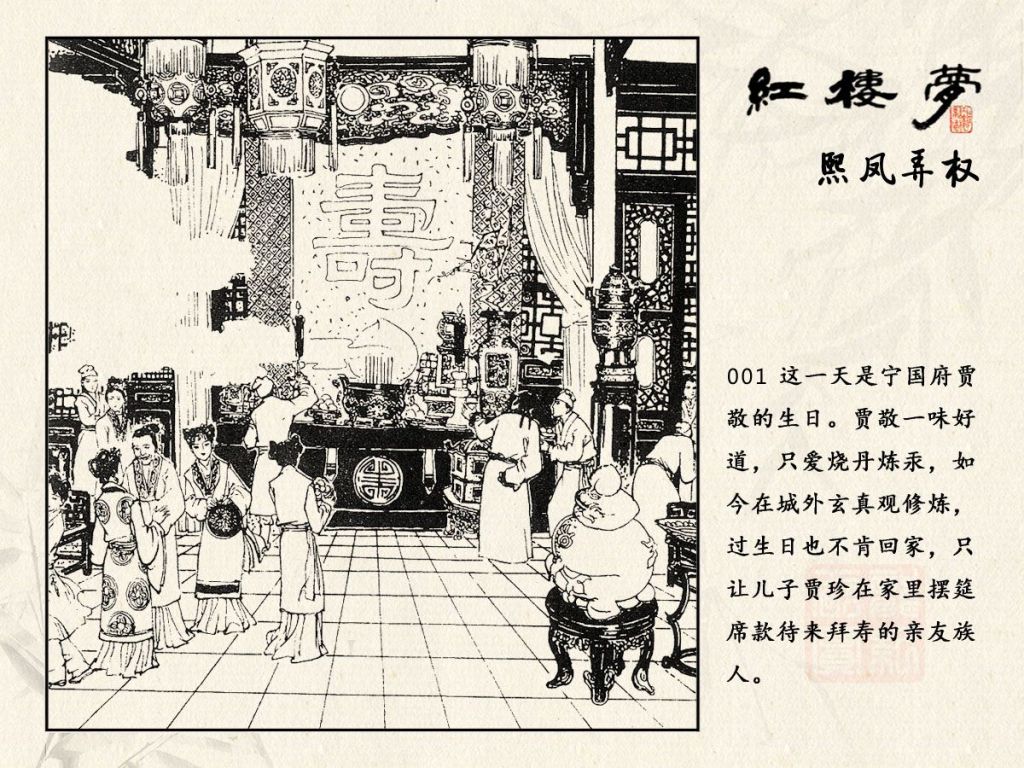 紅樓夢
熙凤弄权
壽
001 这一天是宁国府贾
敬的生日。贾敬一味好
道，只爱烧丹炼汞，如
今在城外玄真观修炼，
过生日也不肯回家，只
让儿子贾珍在家里摆筵
席款待来拜寿的亲友族
人。